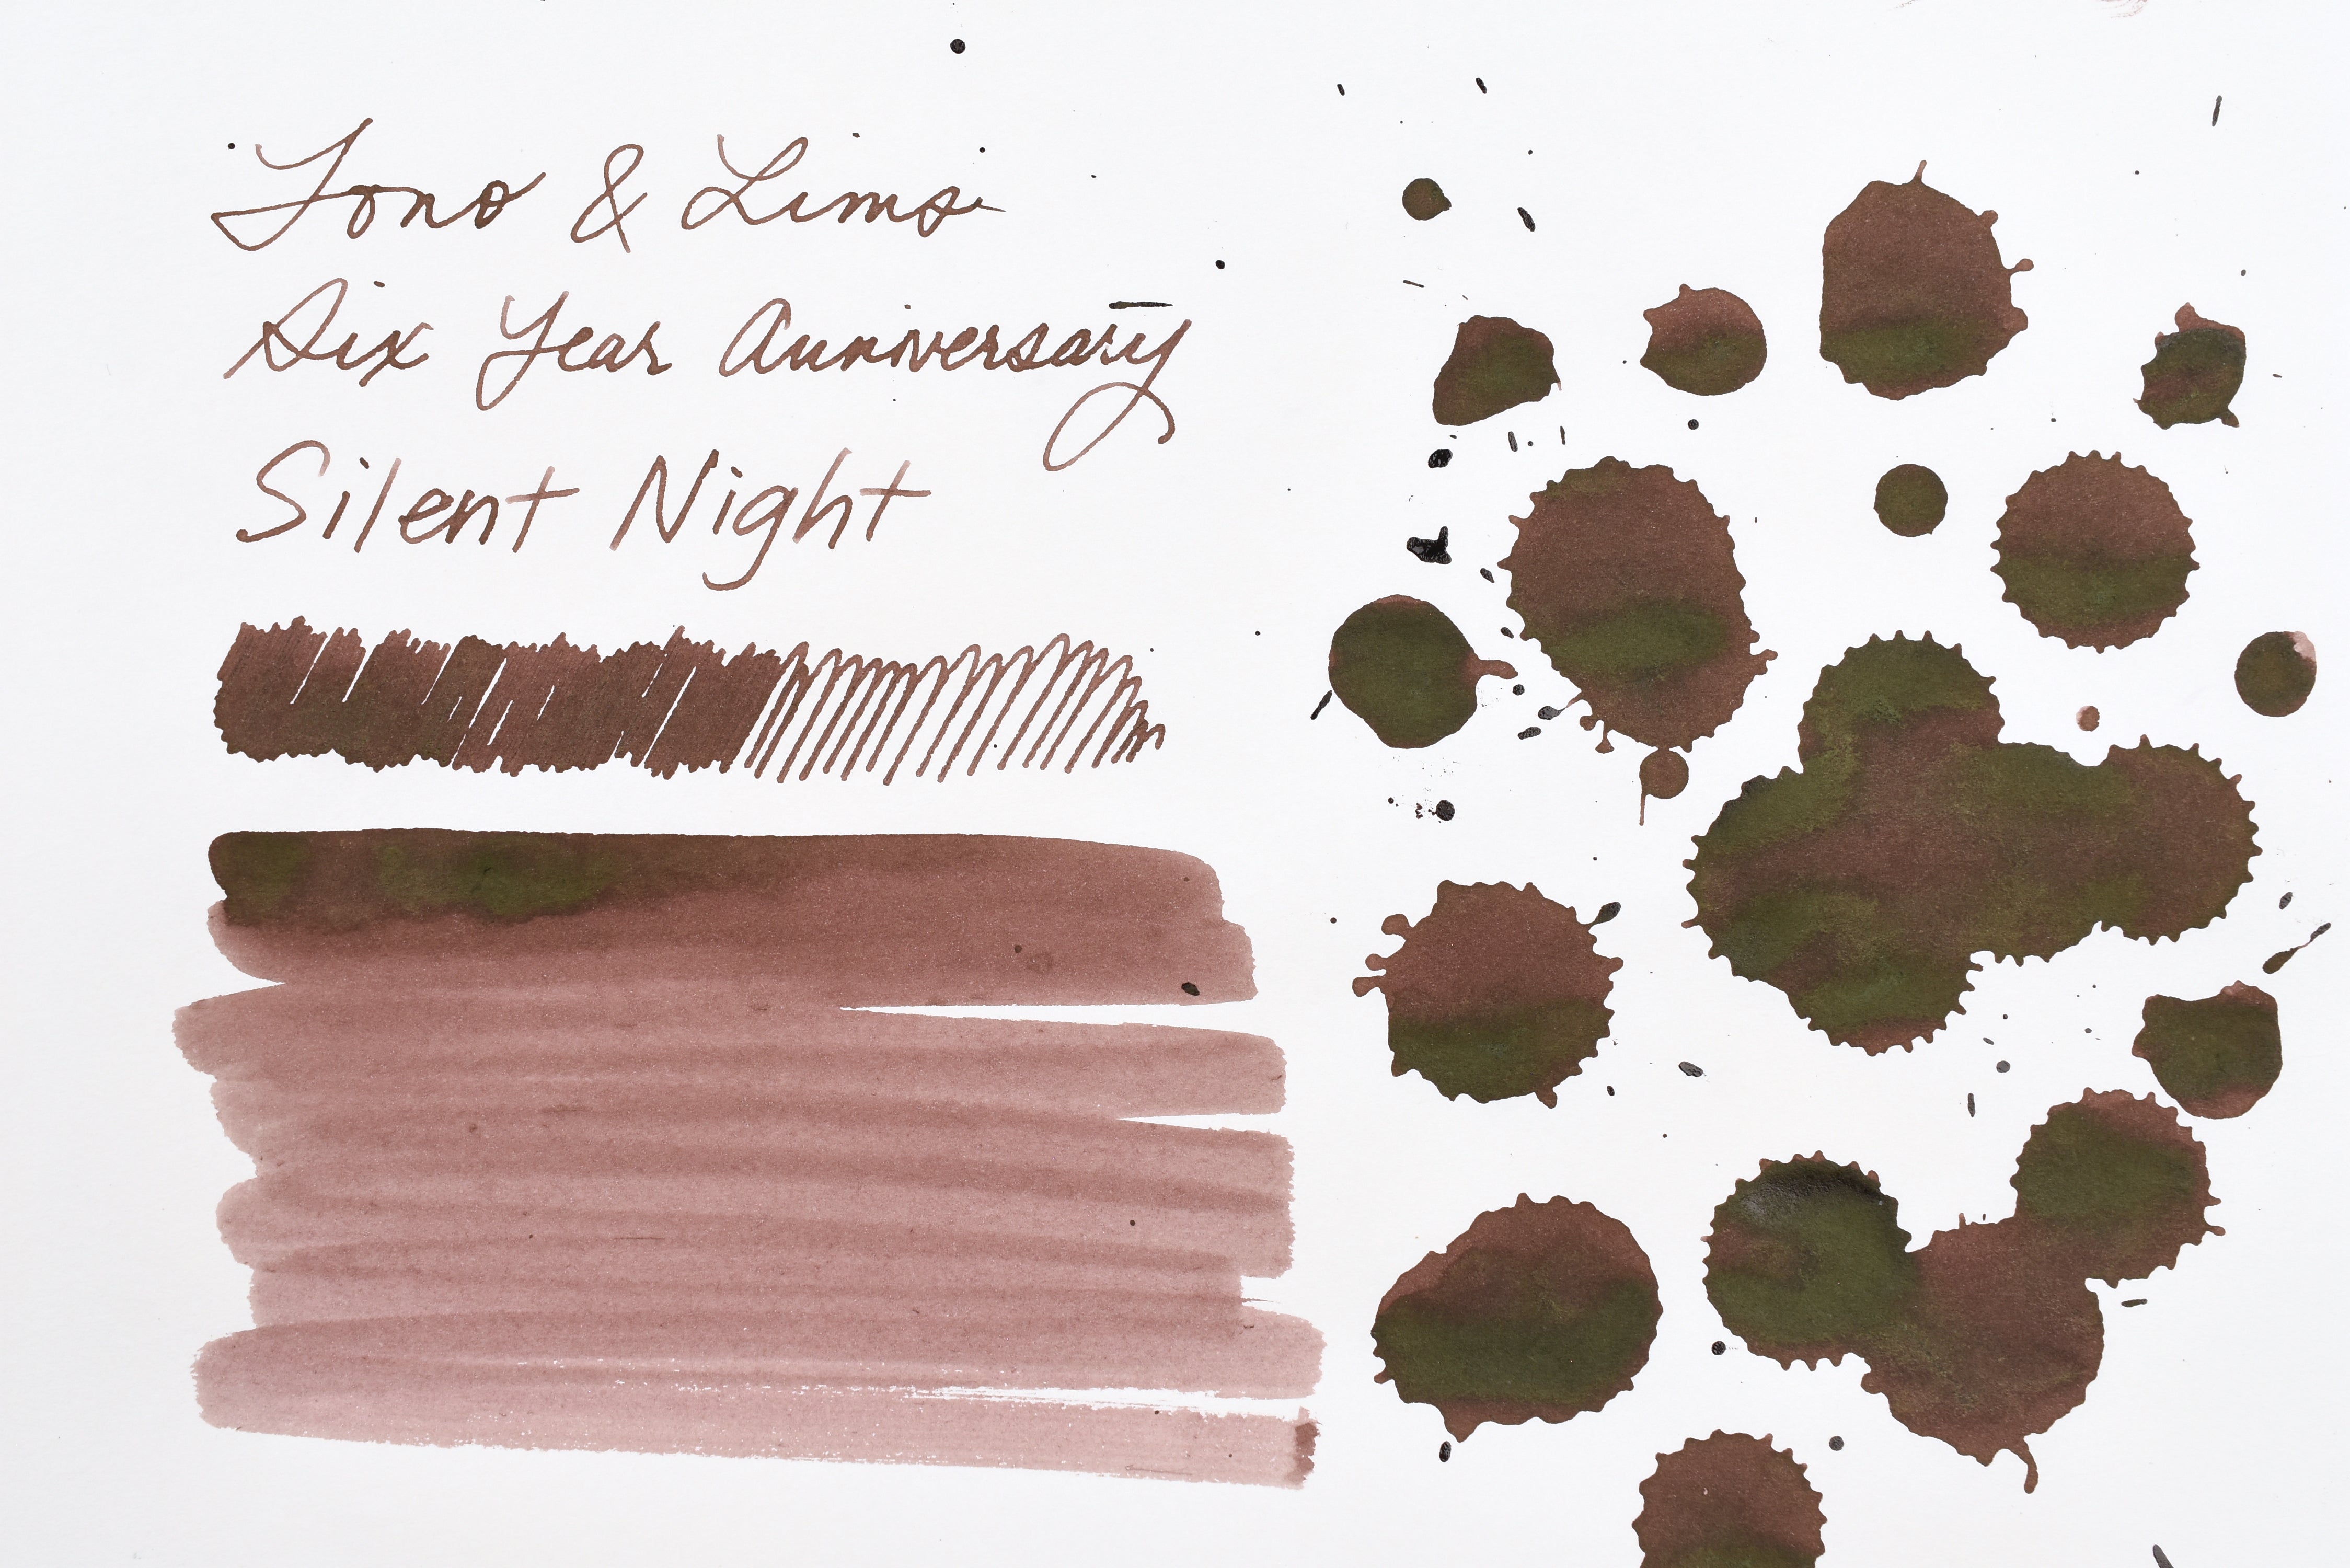 Tono & Lims
Six Year Anniversary
Silent Night